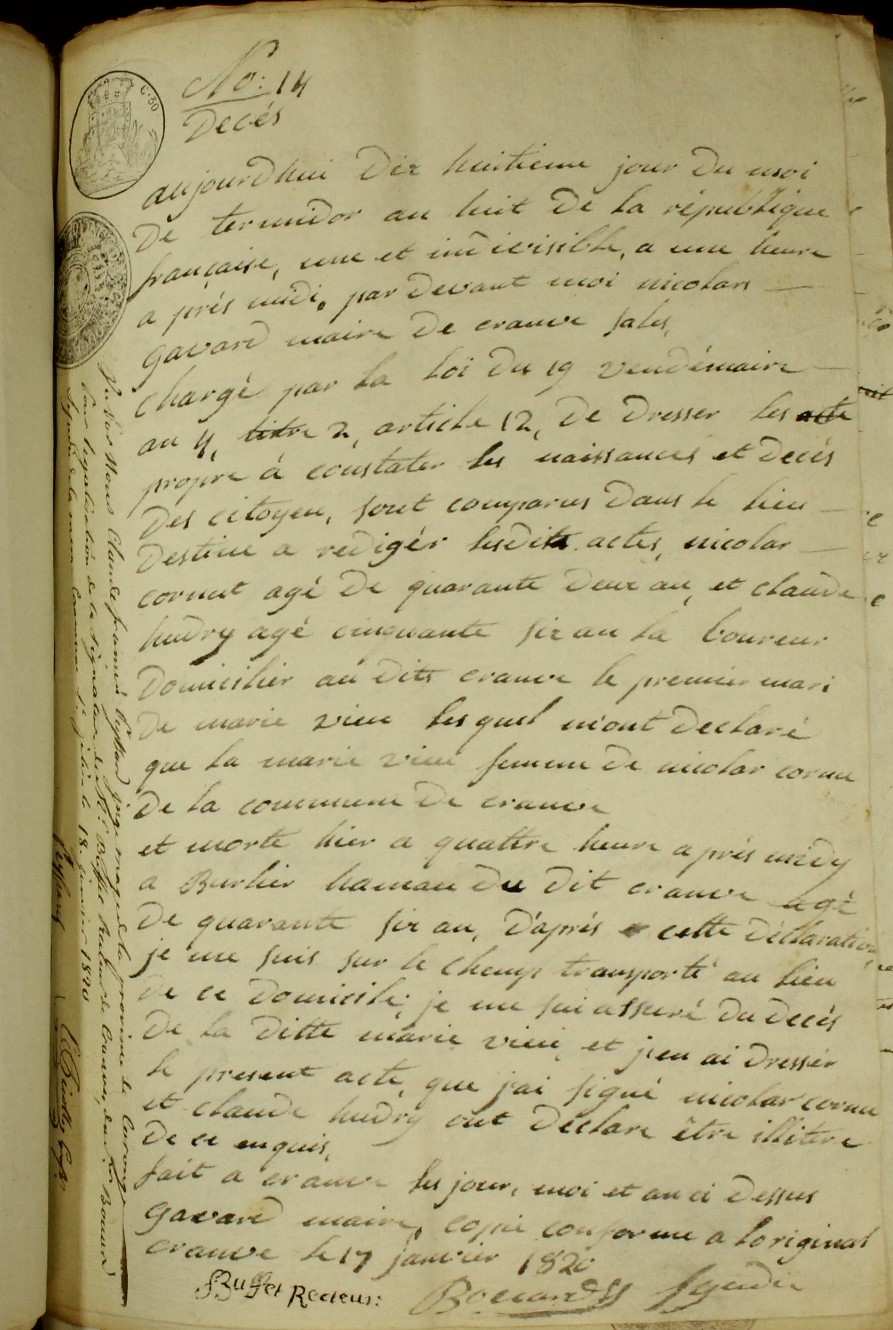 No: 14
Decés
aujourdhui dix huitieme jour du moi
de termidor an huit de la république
française, une et indivisible, a une heure
a prés midi, par devant moi nicolas
gavard maire de cranve sales,
chargé par la loi du 19 vendémaire
an 4, titre 2, article 12, de dresser les acte
propre á constater les naissances et decés
des citoyen, sont comparus dans le lieu
destine a redigér lesdits actes, nicolas
cornut agé de quarante deux an, et claude
hudry agé cinquante six an la boureur
domicilier au dits cranve le premier mari
de marie vien lesquel m'ont declaré
que la marie vien femme de nicolas cornu
de la commune de cranve
et morte hier a quattre heure a prés midy
a Burlier hameau du dit cranve agé
de quarante six an, d'aprés cette déclaration
je me suis sur le champ transporté au lieu
de ce domicile, je me sui assuré du decés
de la ditte marie vien, et j'en ai dressér
le present acte que j'ai signé nicolas cornu
et claude hudry ont déclare être illitere
de ce enquis,
fait a cranve les jour, moi et an ci dessus
gavard maire, copie conforme a loriginal
cranve le 17 janvier 1820
Buffet Recteur: Bouvard Syndic
C. 50
Vu par Nous Claude françois juge maje de la province de Carouge
pour légalisation de la signature de Rd. Buffet Recteur de Cranve, du Sr Bouvard
Syndic de la même Commune le 18 janvier 1820